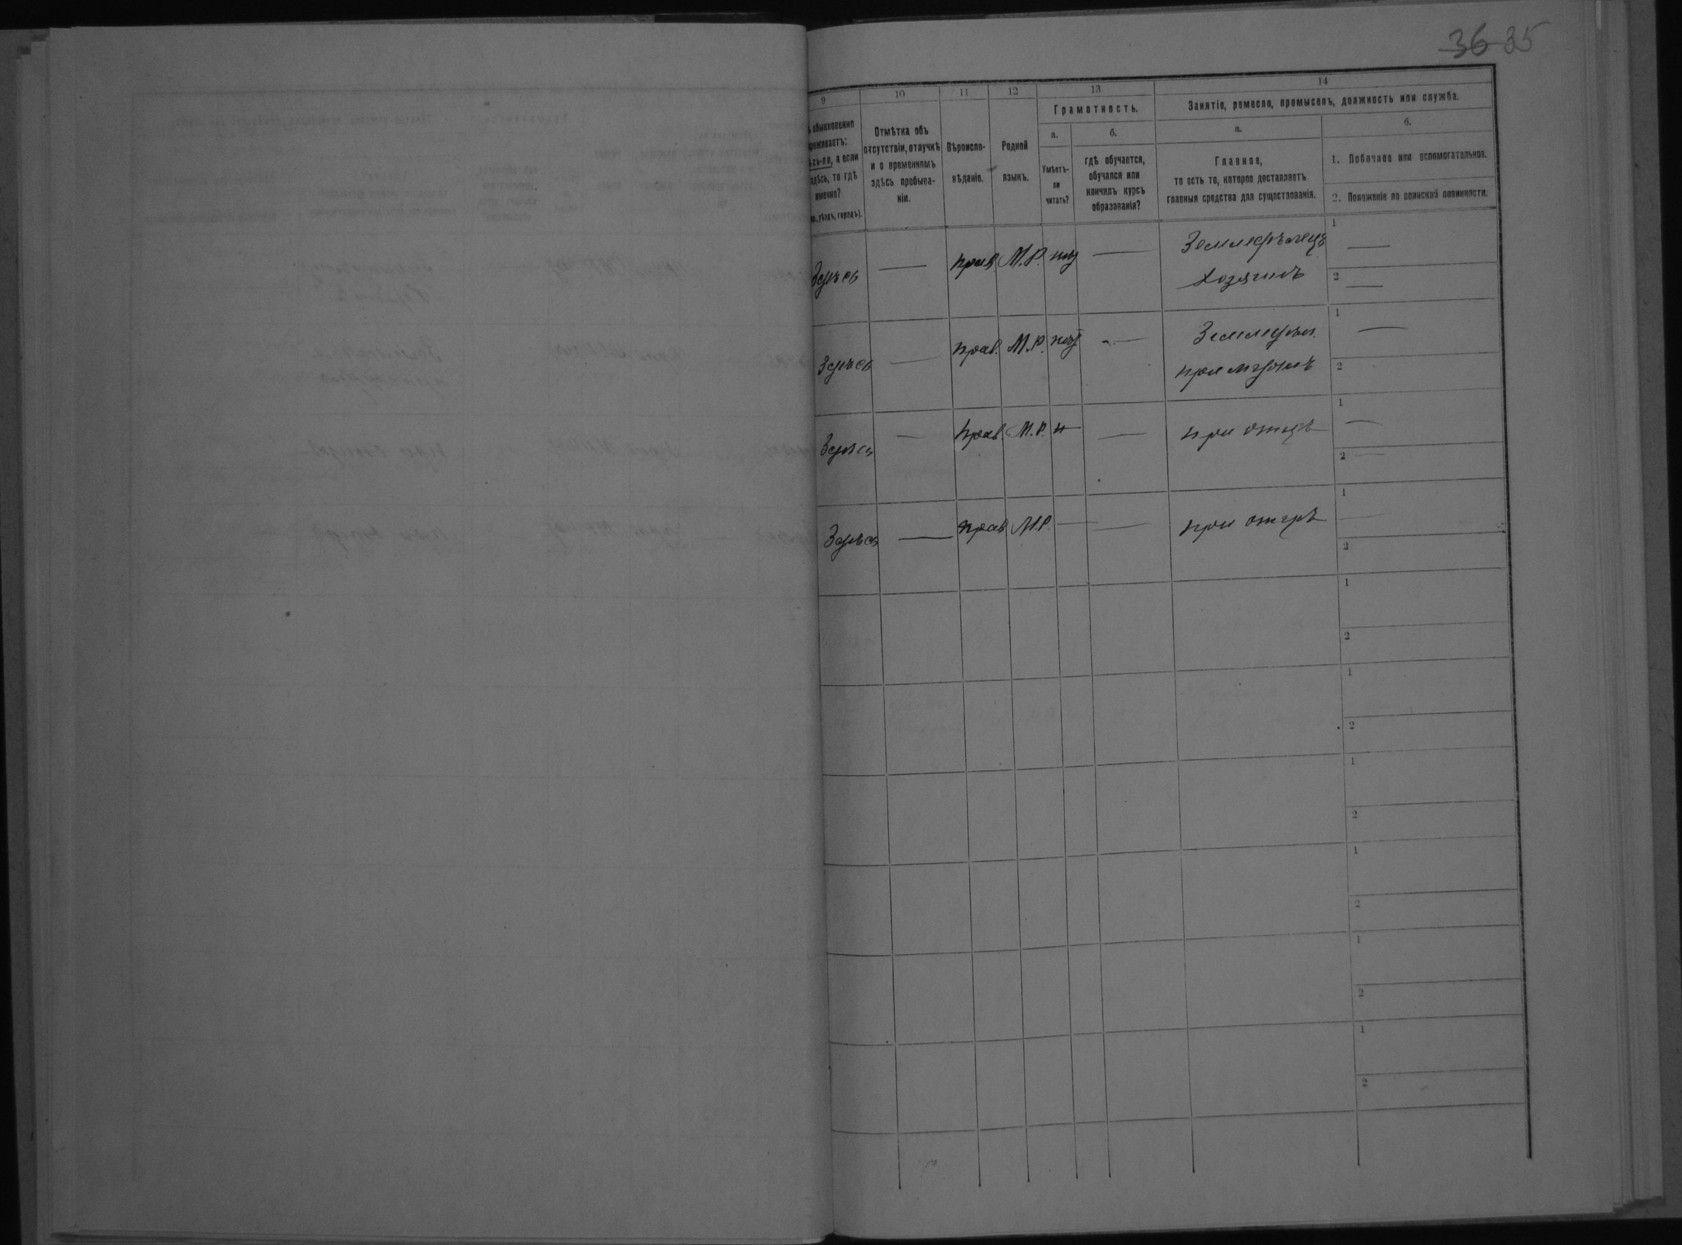 36 35
9
10
11
12
13
14
Грамотность.
Занятіе, ремесло, промыселъ, должность или служба.
а.
б.
а.
б.
обыкновенно
проживаетъ:
здѣсь-ли, а если
не здѣсь, то гдѣ
именно?
уѣздъ, городъ).
Отмѣтка объ
отсутствіи, отлучкѣ
и о временномъ
здѣсь пребыва-
ніи.
Вѣроиспо-
вѣданіе.
Родной
языкъ.
Умѣетъ-
ли
читать?
гдѣ обучается,
обучался или
кончилъ курсъ
образованія?
Главное,
то есть то, которое доставляетъ
главныя средства для существованія.
1. Побочное или вспомогательное.
2. Положеніе по воинской повинности.
Здѣсь — прав. М.Р. — Земледѣлецъ 1 —
Хозяинъ 2 —
Здѣсь — прав. М.Р. — 1 —
при мужѣ 2
Здѣсь — прав. М.Р. н — при отцѣ 1 —
2 —
Здѣсь — прав. М.Р. — — при отцѣ 1 —
2
1
2
1
2
1
2
1
2
1
2
1
2